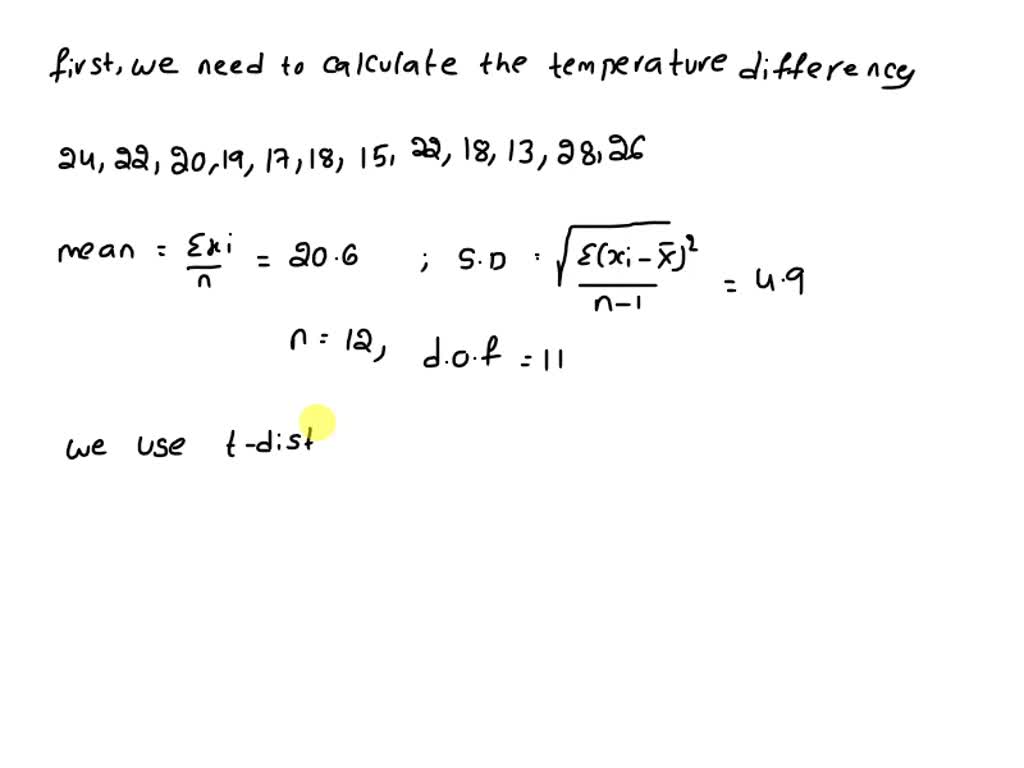 first, we need to calculate the temperature difference
24, 22, 20, 19, 17, 18, 15, 22, 18, 13, 28, 26
mean = Σxi/n = 20.6 ; S.D = √Σ(xi - x̄)²/n-1 = 4.9
n = 12, d.o.f = 11
we use t-dist